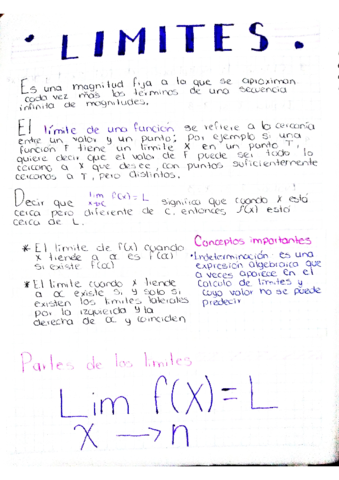 • LIMITES •
Es una magnitud fija a lo que se aproximan
cada vez más los terminos de una secuencia
infinita de magnitudes.
El límite de una función se refiere a la cercanía
entre un valor y un punto; por ejemplo si una
función F tiene un límite X en un punto T,
quiere decir que el valor de F puede ser todo lo
cercano a X que desee, con puntos suficientemente
cercanos a T, pero distintos.
Decir que lim f(x)=L significa que cuando x está
x→c
cerca pero diferente de c. entonces f(x) está
cerca de L.
* El límite de f(x) cuando
x tiende a α es f(α)
si existe f(α)
* El límite cuando x tiende
a α existe si y solo si
existen los limites laterales
por la izquierda y la
derecha de α y coinciden
Conceptos importantes
• Indeterminación: es una
expresión algebraica que
a veces aparece en el
Calculo de limites y
cuyo valor no se puede
predecir
Partes de los limites
Lim f(x) = L
x → n